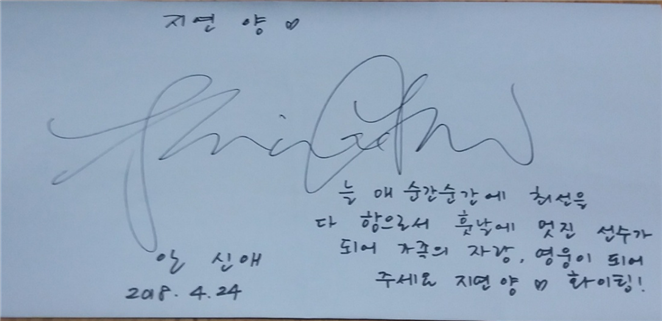 지연 양 ♡
늘 매 순간순간에 최선을
다 함으로서 훗날에 멋진 선수가
되어 가족의 자랑, 영웅이 되어
주세요 지연양 ♡ 화이팅!
안 신애
2018. 4. 24